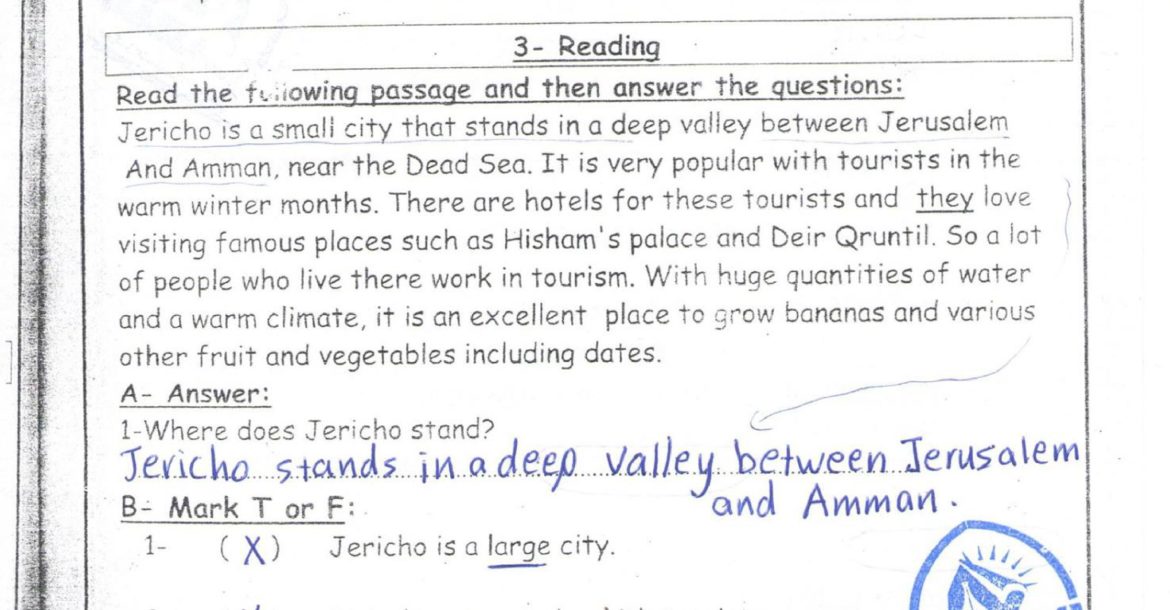 3- Reading
Read the following passage and then answer the questions:
Jericho is a small city that stands in a deep valley between Jerusalem
And Amman, near the Dead Sea. It is very popular with tourists in the
warm winter months. There are hotels for these tourists and they love
visiting famous places such as Hisham's palace and Deir Qruntil. So a lot
of people who live there work in tourism. With huge quantities of water
and a warm climate, it is an excellent place to grow bananas and various
other fruit and vegetables including dates.
A- Answer:
1-Where does Jericho stand?
Jericho stands in a deep valley between Jerusalem
and Amman.
B- Mark T or F:
1- (X) Jericho is a large city.